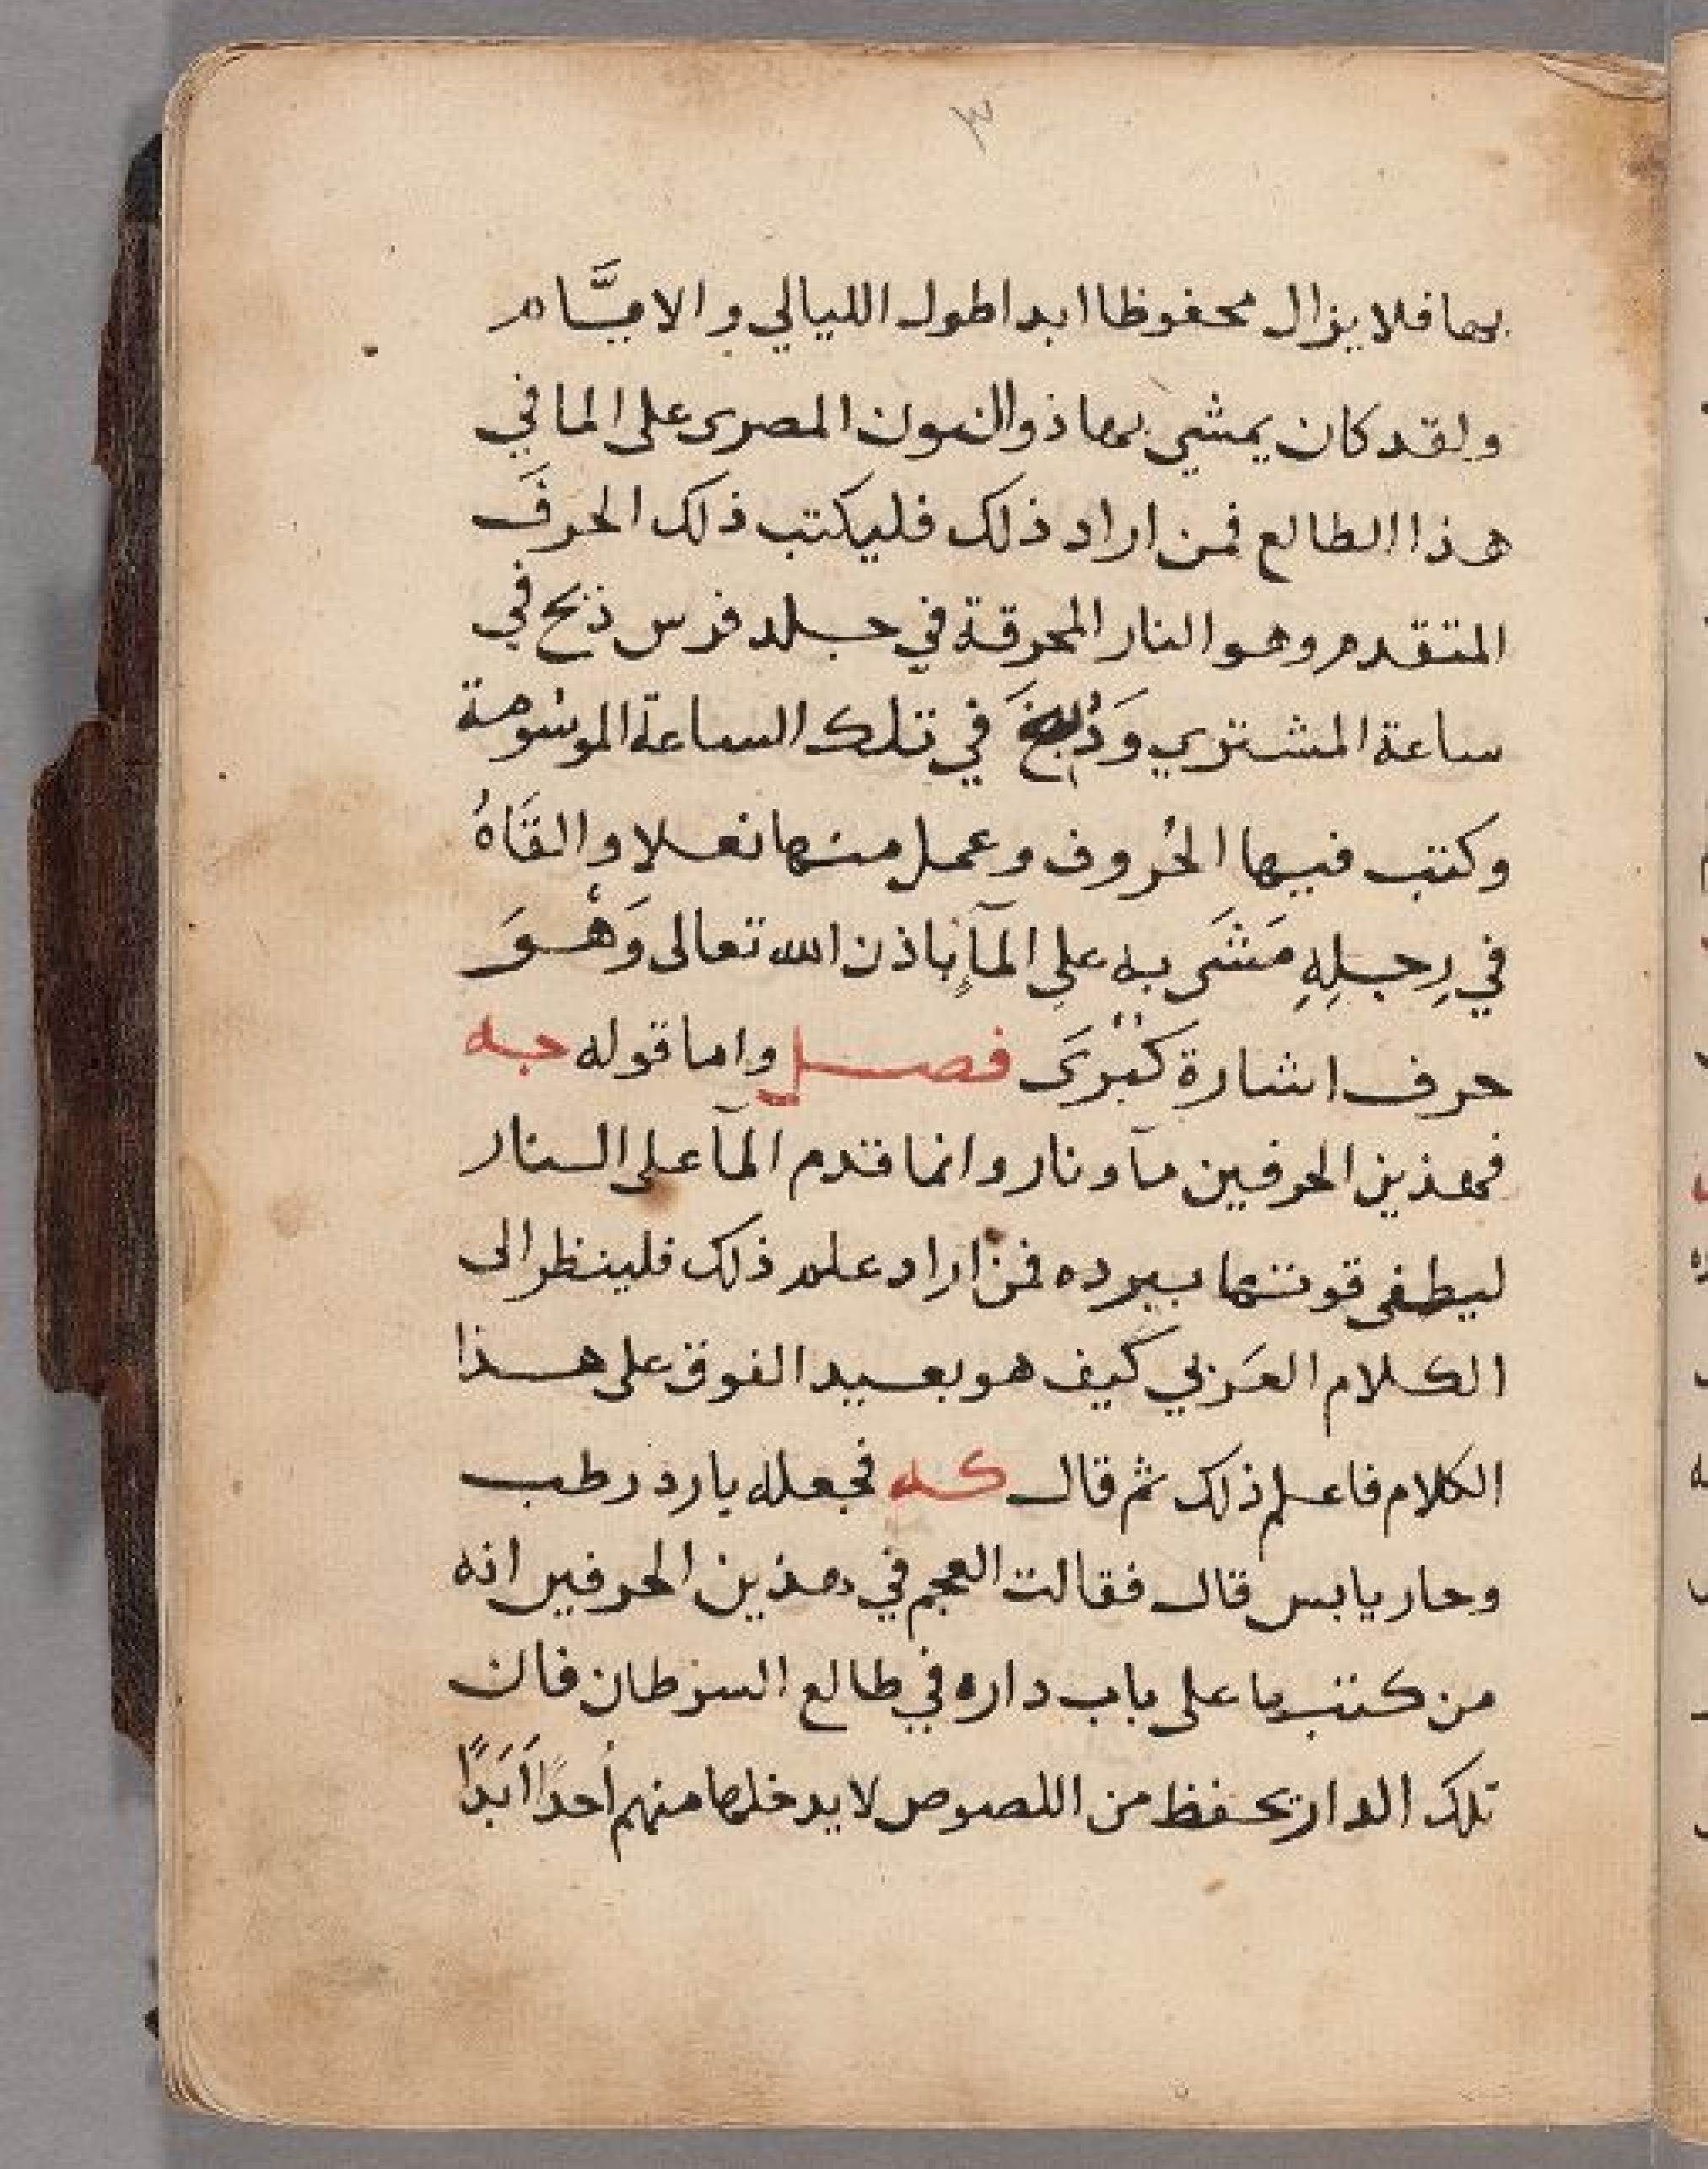 ٣
بهما فلا يزال محفوظا ابدا طول الليالي والايَّام
ولقد كان يمشي بهما ذو النون المصرى على الما في
هذا الطالع فمن اراد ذلك فليكتب ذلك الحرفَ
المتقدم وهو النار المحرقة في جلد فرس ذبح في
ساعة المشتري وَدُبغَ في تلك الساعة الموسومة
وكتب فيها الحُروف وعمل منها نعلا والقَاهُ
في رِجلِهِ مَشَى به على المآءِ باذن الله تعالى وَهْوَ
حرف اشارة كبْرَى فصل واما قوله جه
فهذين الحرفين مآ ونار وانما قدم المآ على النار
ليطفى قوتها ببرده فمن اراد علم ذلك فلينظر الى
الكلام العَربي كيف هو بعيد الفوق على هذا
الكلام فاعلم ذلك ثم قال كه فجعله بارد رطب
وحار يابس قال فقالت العجم في هذين الحرفين انه
من كتبها على باب داره في طالع السرطان فان
تلك الدار تحفظ من اللصوص لا يدخلها منهم أحدًا اَبَدًا